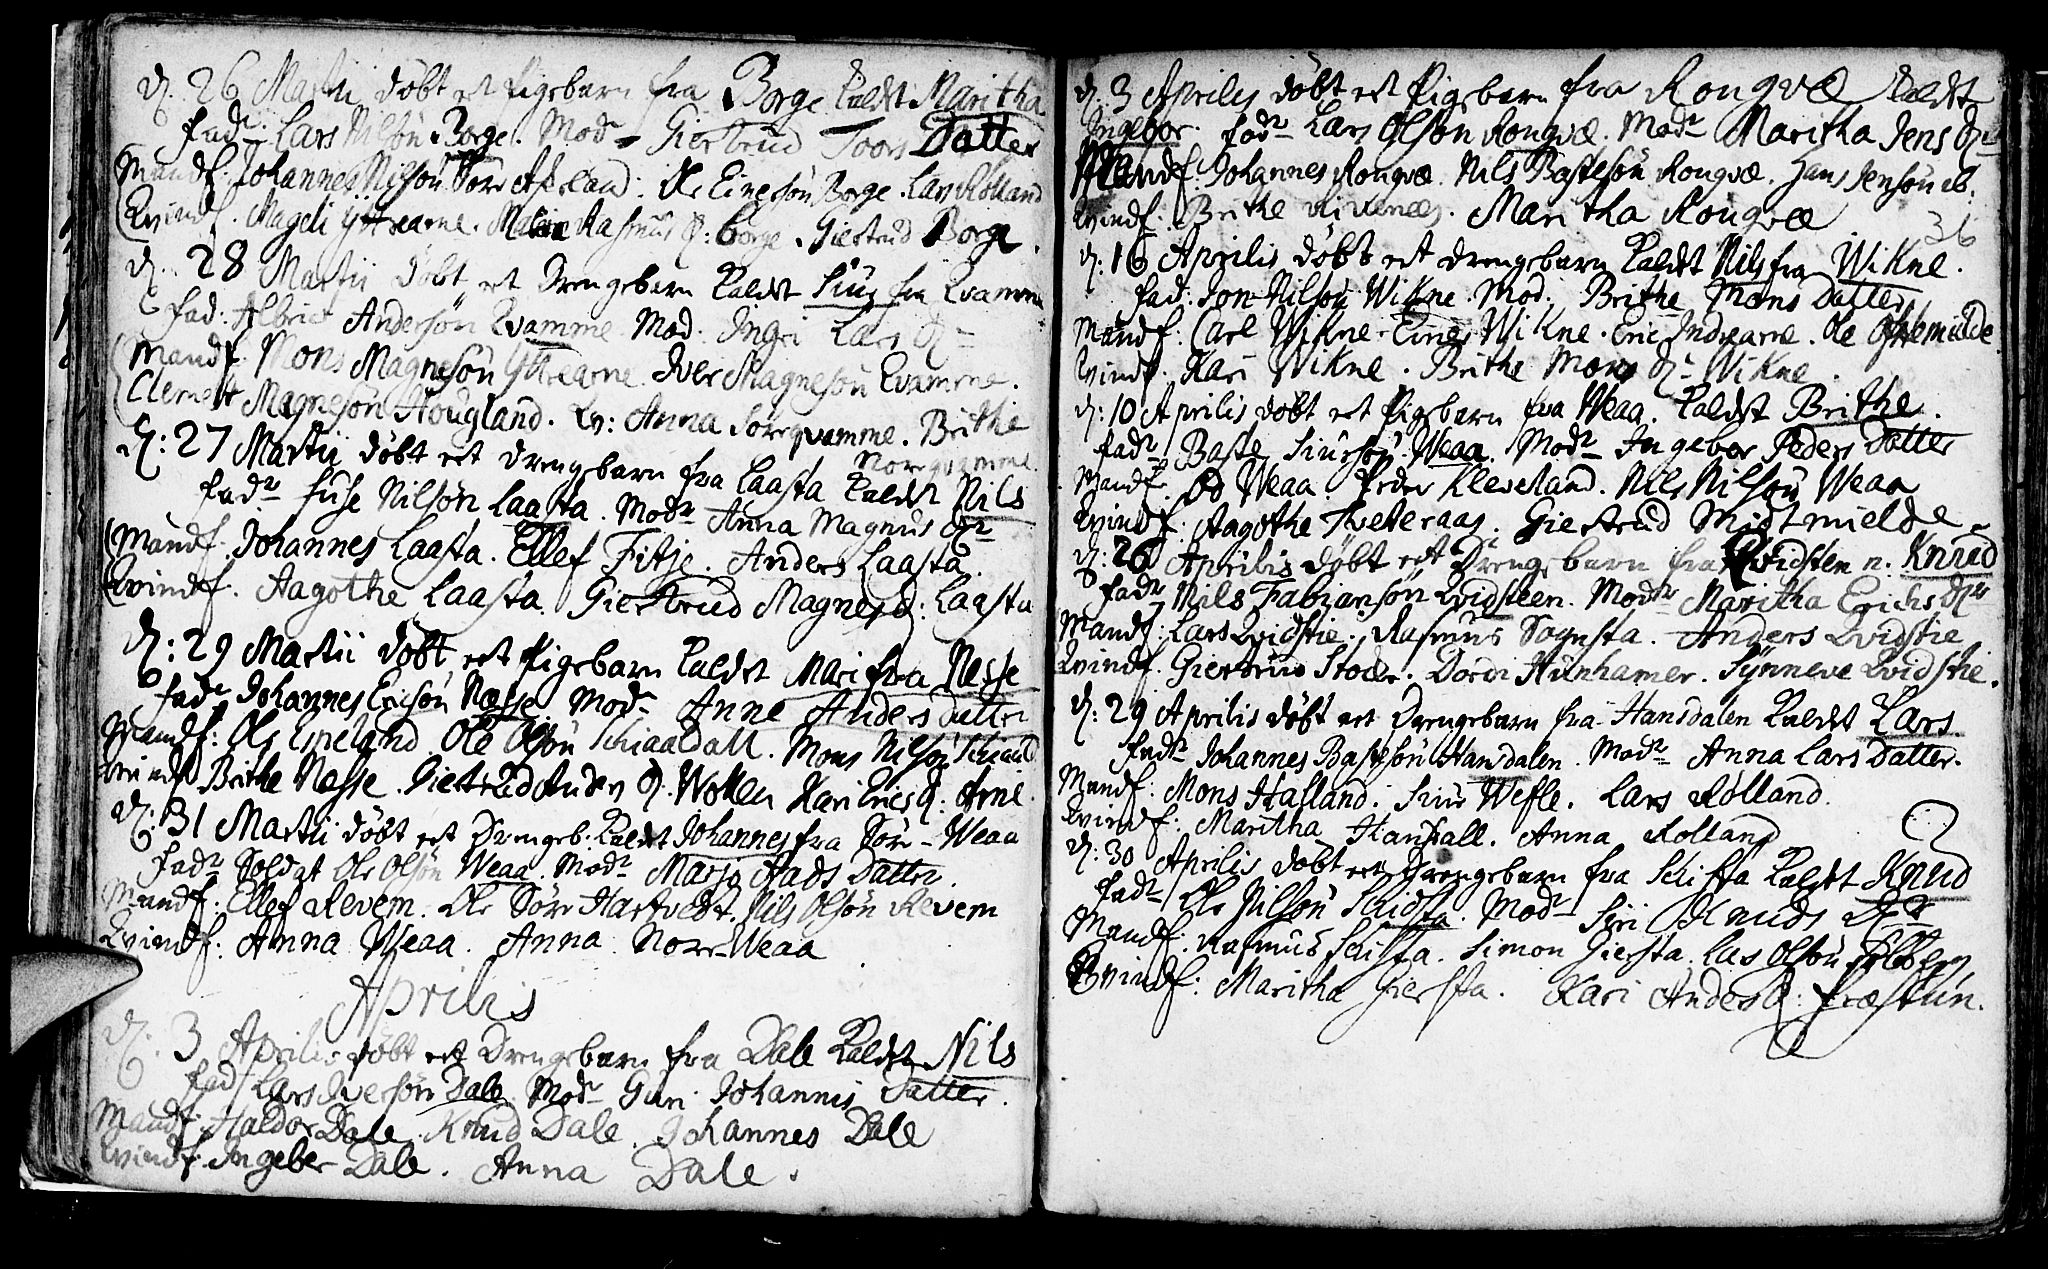 d. 26 Martii döbt eet Pigebarn fra Borge kaldt Maritha
fad:r Lars Nilsön Borge. Mod:r Giertrud Toors Datter
Mandf. Johannes Nilsön Söre Aferland. Ole Einesön Borge. Lars Rolland
Qvindf. Mageli Yttrearne. Malene Rasmus D: Borge. Giertrud Borge.
d. 28 Martii döbt eet Drengebarn kaldt Siur fra Qvamme
fad. Albrict Andersön Qvamme Mod. Ingri Lars D:r
Mandf. Mons Magnesön Yttrearne Iver Magnesön Qvamme.
Clemett Magnesön Hougland. Qv: Anna Söreqvamme. Brithe
Noreqvamme.
d: 27 Martii döbt eet drengebarn fra Laasta kaldt Nils
fad:r Fuse Nilsön Laasta. Mod:r Anna Magnus D:r
Mandf. Johannes Laasta. Ellef Fitje. Anders Laasta.
Qvindf. Aagothe Laasta. Giertrud Magnes D: Laasta
d: 29 Martii döbt eet Pigebarn kaldt Mari fra Nesse
fad:r Johannes Ericsön Næsse Mod:r Anne Anders Datter
Mandf: Ole Espeland Ole Olsön Schiaaldall. Mons Nilsön
Qvindf Brithe Nesse. Giertrud Anders D. Wollen Kari Erics D: Arne.
d: 31 Martii döbt eet Drengeb. kaldt Johannes fra Söre-Weaa
Fad:r Soldat Ole Olsön Weaa. Mod:r Marjo Aads Datter.
Mandf: Ellef Revem. Ole Söre Hartvedt. Nils Olsön Revem
Qvindf: Anna Weaa. Anna Nore-Weaa
Aprilis
d: 3 Aprilis döbt eet Drengebarn fra Dale kaldt Nils
fad Lars Iversön Dale. Mod:r Guri Johannis Datter.
Mandf. Haldor Dale. Knud Dale. Johannes Dale
Qvindf. Ingeber Dale. Anna Dale.
d. 3 Aprilis döbt eet Pigebarn fra Rongvæ kaldt
Ingebor. fad:r Lars Olsön Rongvæ. Mod:r Maritha Jens D:r
Mandf. Johannes Rongvæ. Nils Bastesön Rongvæ. Hans Jensön ib.
Qvindf. Brithe Rivenes. Maritha Rongvæ
36
d: 16 Aprilis döbt eet drengebarn kaldt Nils fra Wikne.
fad. Jon Nilsön Wikne. Mod. Brithe Mons Datter
Mandf: Carl Wikne. Einer Wikne. Eric Indrearne. Ole
Qvindf. Kari Wikne. Brithe Mons D:r Wikne.
d: 10 Aprilis döbt eet Pigebarn fra Weaa. kaldt Brithe.
fad:r Baste Siursön Weaa. Mod:r Ingebor Peders Datter
Mandf. Od Weaa. Peder Kleveland. Nils Nilsön Weaa
Qvindf. Aagothe Tveteraas. Giertrud Midtmielde.
d: 26 Aprilis döbt eet Drengebarn fra Qvidsten n. Knud
fad:r Nils Fabiansön Qvidsteen. Mod:r Maritha Erichs D:r
Mandf: Lars Qvidstie. Rasmus Sognsta. Anders Qvidstie
Qvindf. Giertrud Stoder. Dordi Hunhamer. Synneve Qvidstie.
d: 29 Aprilis döbt eet Drengebarn fra Hansdalen kaldt Lars.
fad:r Johannes Bastesön Hansdalen. Mod:r Anna Lars Datter.
Mandf: Mons Hafland. Siur Wefle. Lars Rolland.
Qvindf: Maritha Hansdall. Anna Rolland
d: 30 Aprilis döbt eet Drengebarn fra Schifta kaldt Knud
fad:r Ole Nilsön Schifta. Mod:r Siri Knuds D:r
Mandf: Rasmus Schifta. Simon Giersta. Lars Olsön
Qvindf: Maritha Giersta. Kari Anders D: Præstun.